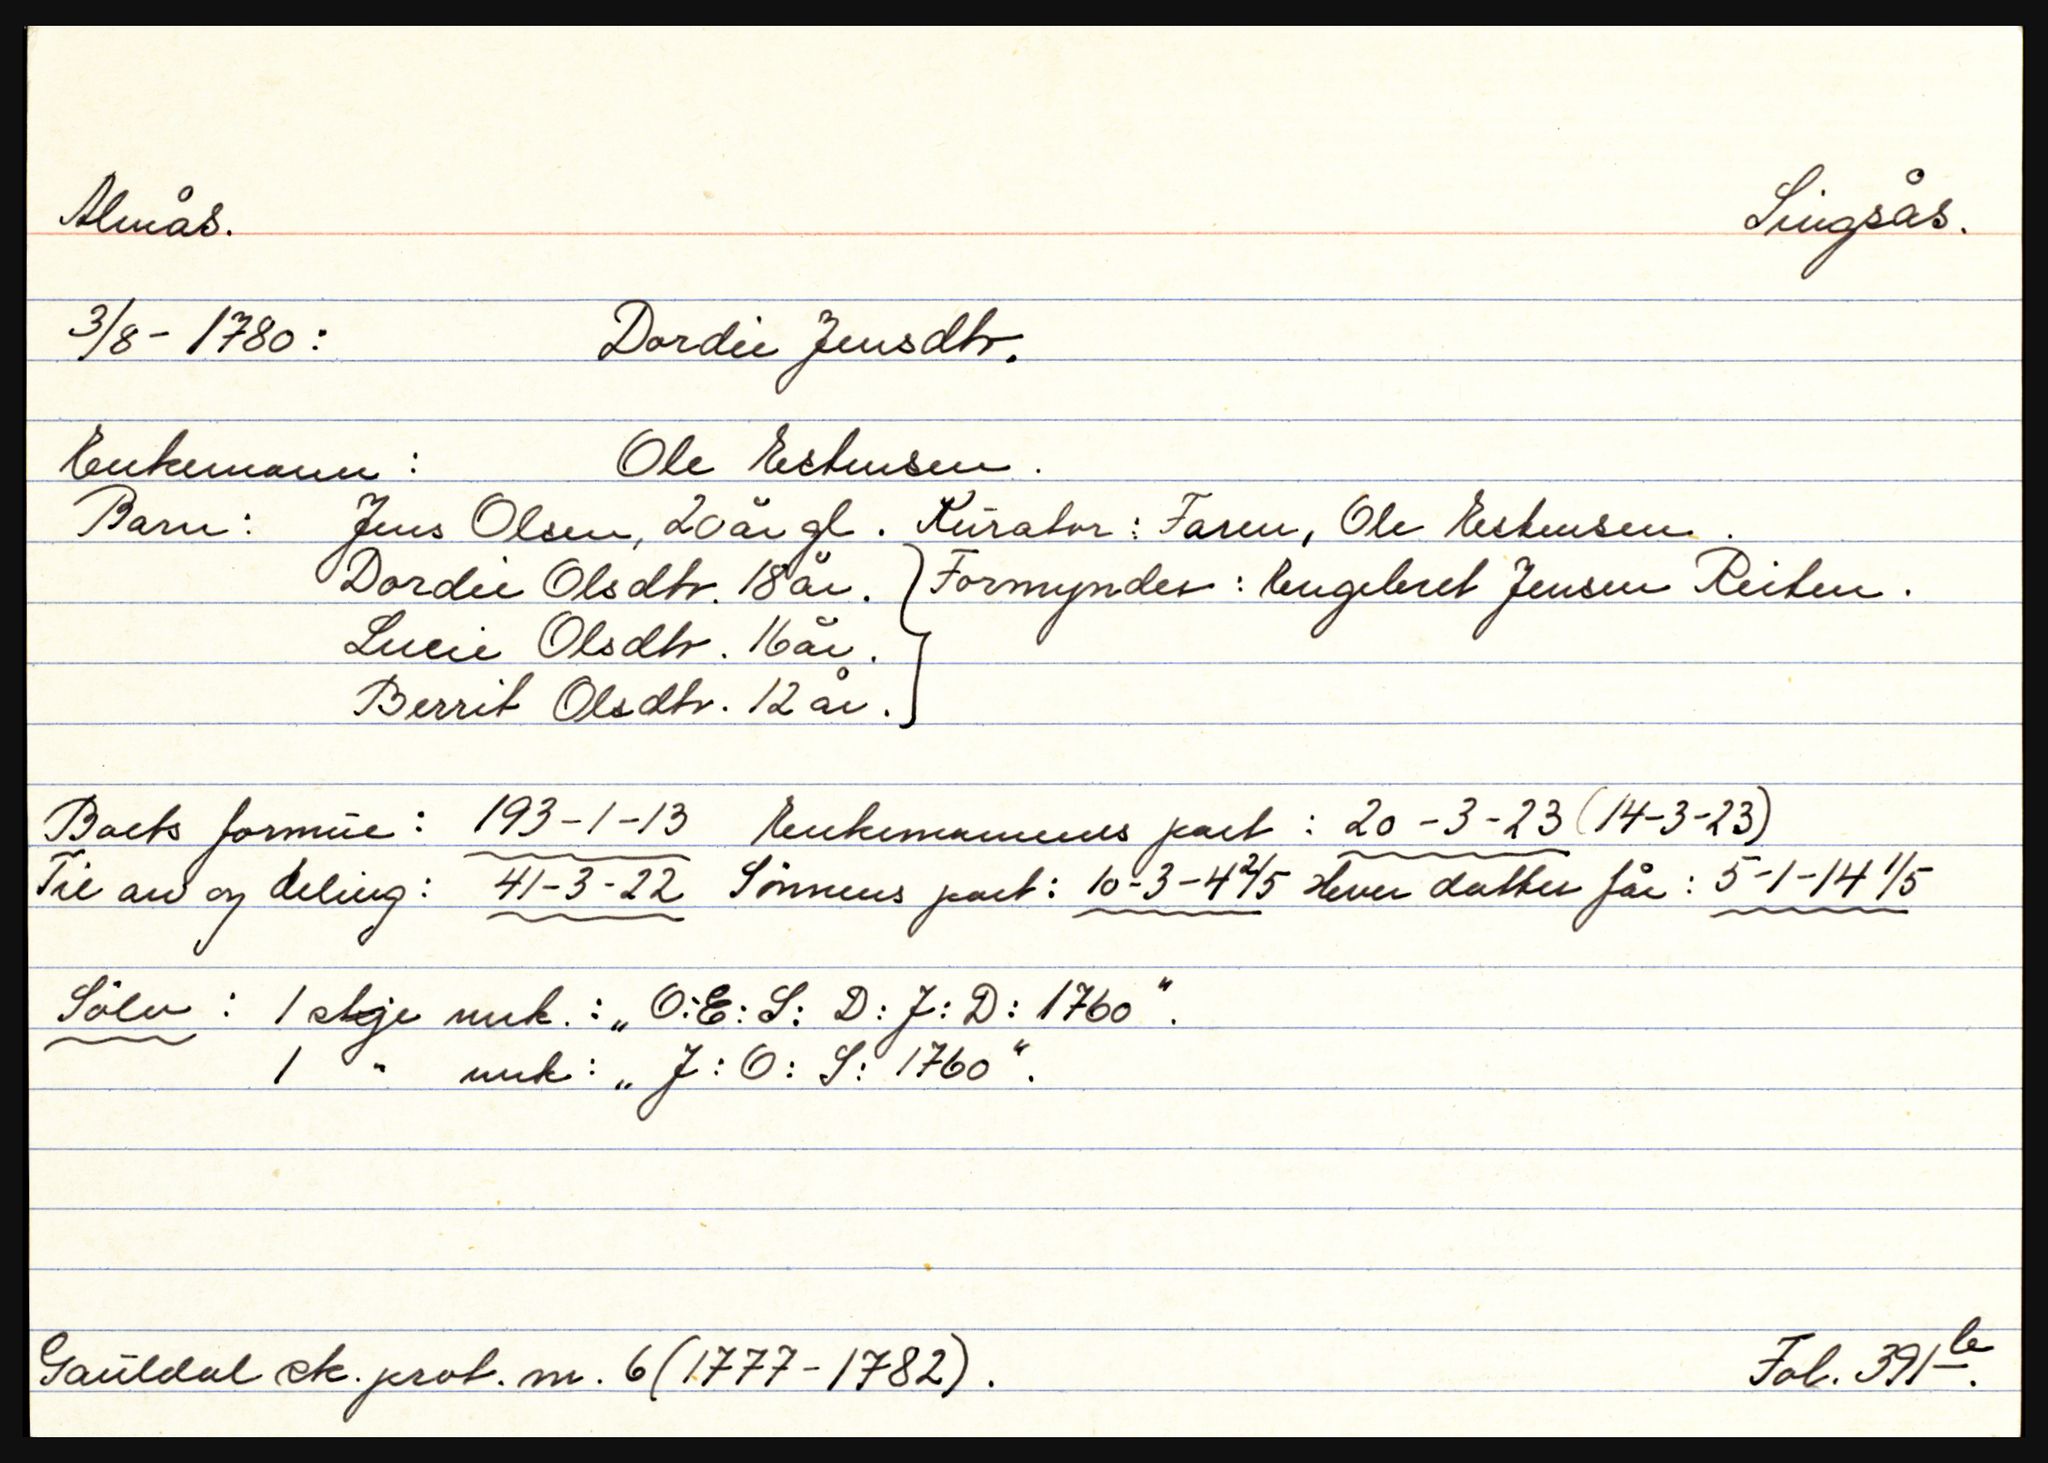 Almås. Singsås.
3/8 - 1780: Dordie Jensdtr.
Enkemann: Ole Estensen.
Barn: Jens Olsen, 20 år gl. Kurator: Faren, Ole Estensen.
Dordie Olsdtr. 18 år. } Formynder: Engebret Jensen Reiten.
Lucie Olsdtr. 16 år.
Berrit Olsdtr. 12 år.
Boets formue: 193-1-13 Enkemannens part: 20-3-23 (14-3-23)
Til arv og deling: 41-3-22 Sönnens part: 10-3-4 2/5 Hver datter får: 5-1-14 1/5
Sölv: 1 skje mrk.: „O:E:S: D:J:D: 1760“.
1 " mrk: „J:O:S: 1760“.
Gauldal sk. prot. nr. 6 (1777-1782). Fol. 391 b.